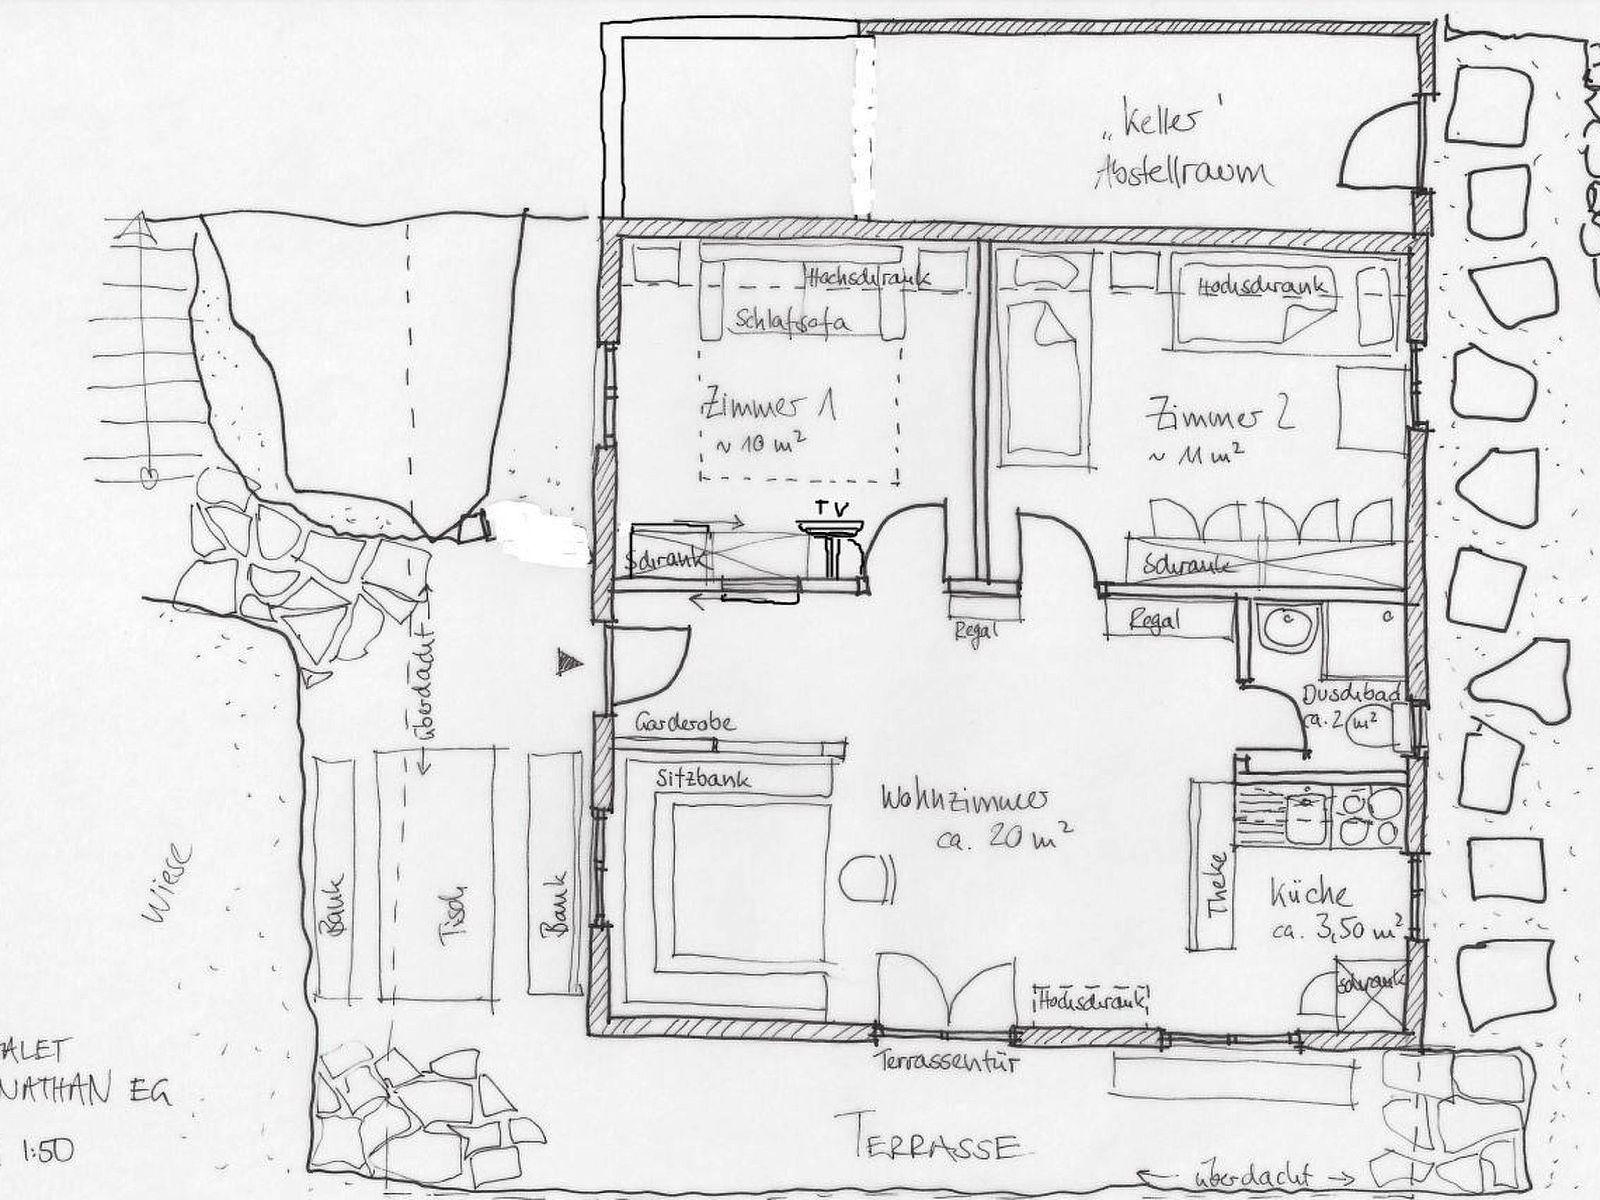 „Keller'
Abstellraum
Hochschrank
Schlafsofa
Hochschrank
Zimmer 1
~ 10 m²
Zimmer 2
~ 11 m²
TV
Schrank
Schrank
Regal
Regal
überdacht
Duschbad
ca. 2 m²
Garderobe
Sitzbank
Wohnzimmer
ca. 20 m²
Theke
Küche
ca. 3,50 m²
Wiese
Bank
Tisch
Bank
Schrank
Hochschrank
Terrassentür
ALET
NATHAN EG
1:50
TERRASSE
überdacht